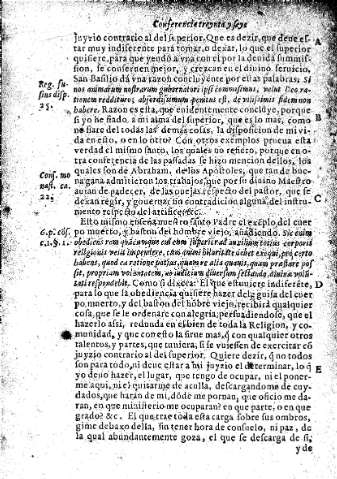 Conferencia treynta y seys
juyzio contrario al del superior. Que es dezir, que deue es-
tar muy indiferente para tomar, o dexar, lo que el superior A
quisiere, para que yendo a vna con el por la deuida summis-
sion, se conseruen mejor, y crezcan en el diuino seruicio.
San Basilio dà vna razon concluyente por estas palabras; Si
Reg. fu-
sius disp.
nos animarum nostrarum gubernatori ipsi committimus, velut Deo ra-
tionem reddituro; absurdissimum est, de vilissimis fidem non
habere. Razon es esta, que euidentemente concluye, porque B
si yo he fiado a mi alma del superior, que es lo mas, como
no fiare del todas las demas cosas, la disposicion de mi vi-
da en esto, o en lo otro? Con otros exemplos prueua esta
verdad el mismo santo, los quales no refiero, porque en o-
tra conferencia de las passadas se hizo mencion dellos, los
Cōf. mo
nast. ca.
22.
quales son de Abraham, de los Apostoles, que tan de bue-
na gana admitieron los trabajos, que por su diuino Maestro
auian de padecer, de las ouejas respeto del pastor, que se C
dexan regir, y gouernar sin contradicion alguna, del instru-
mento respecto del artifice, &c.
Esto mismo enseña nuestro santo Padre el exēplo del cuer
po muerto, y baston del hombre viejo, añadiendo. Sic enim
obediens rem quamcunque cui eum superior ad auxilium totius corporis
religionis velit impendere, cum animi hilaritate debet exequi, pro certo
habens, quod ea ratione potius, quam re alia quauis, quam præstare pos-
sit, propriam voluntatem, ac iudicium diuersum sectando, diuinæ volū-
tati respondebit. Como si dixera: El que estuuiere indiferēte, D
para lo que la obediencia quisiere hazer del, a guisa del cuer
po muerto, y del baston del hōbre viejo, recibirá qualquier
cosa, que se le ordenare con alegria; persuadiendose, que el
hazerlo assi, redunda en bien de toda la Religion, y co-
munidad, y que con esto la sirue mas, q̃ con qualquier otros
talentos, y partes, que tuuiera, si se vuiessen de exercitar cō
juyzio contrario al del superior. Quiere dezir, q̃ no todos
son para todo, ni deue estar a mi juyzio el determinar, lo q̃ E
yo deuo hazer, el lugar, que tengo de ocupar, ni el poner-
me aqui, ni el quitarme de aculla, descargandome de cuy-
dados, que haran de mi, dōde me pornan, que oficio me da-
ran, en que ministerio me ocuparan? en que parte, o en que
grado? &c. El que trae toda esta carga sobre sus ombros,
gime debaxo della, sin tener hora de consuelo, ni paz, de
la qual abundantemente goza, el que se descarga de si,
y de